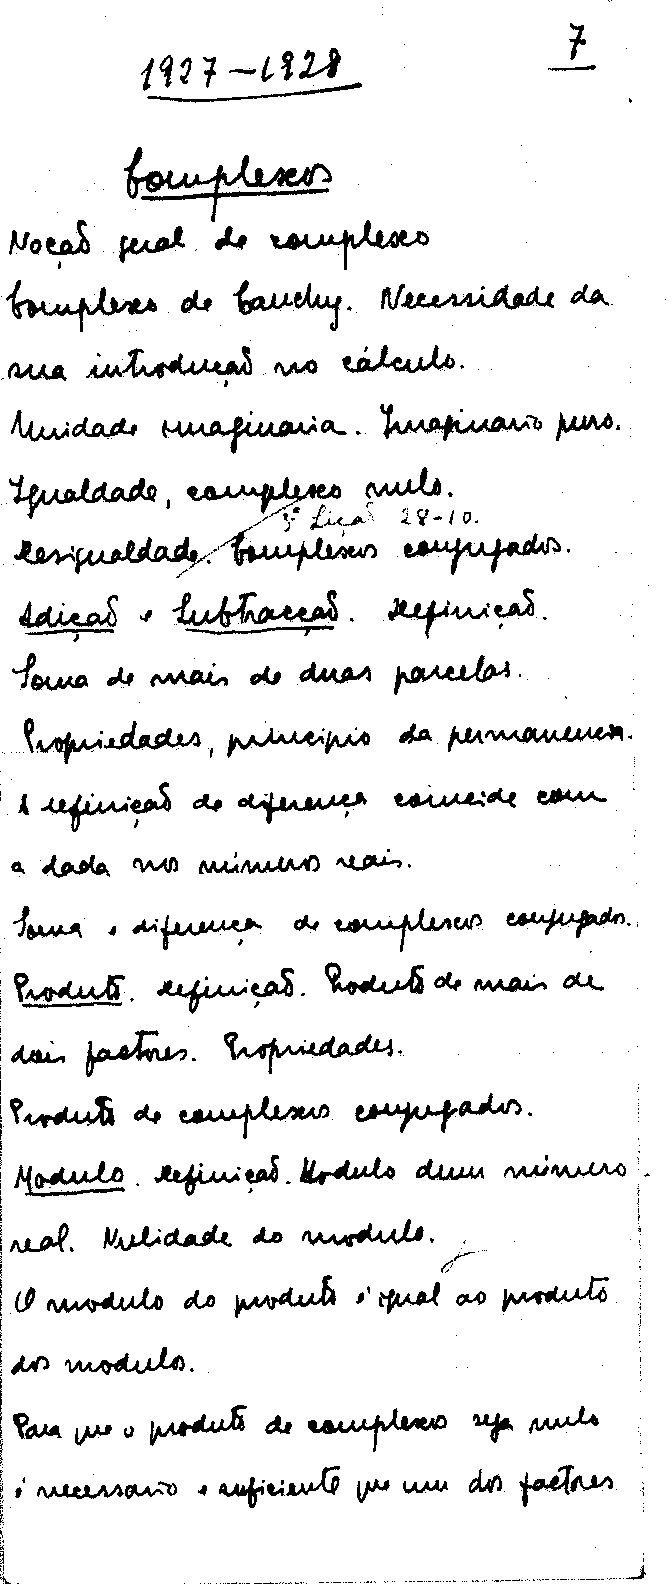 7
1927-1928
Complexos
Noção geral de complexo
Complexo de Cauchy. Necessidade da
sua introdução no cálculo.
Unidade imaginaria. Imaginario puro.
Igualdade, complexo nulo.
3ª Lição 28-10.
Desigualdade. Complexos conjugados.
Adição e Subtracção. Definição.
Soma de mais de duas parcelas.
Propriedades, principio da permanencia.
A definição de diferença coincide com
a dada nos números reais.
Soma e diferença de complexos conjugados.
Produto. Definição. Produto de mais de
dois factores. Propriedades.
Produto de complexos conjugados.
Modulo. Definição. Modulo dum número
real. Nulidade do modulo.
O modulo do produto é igual ao produto
dos modulos.
Para que o produto de complexos seja nulo
é necessario e suficiente que um dos factores